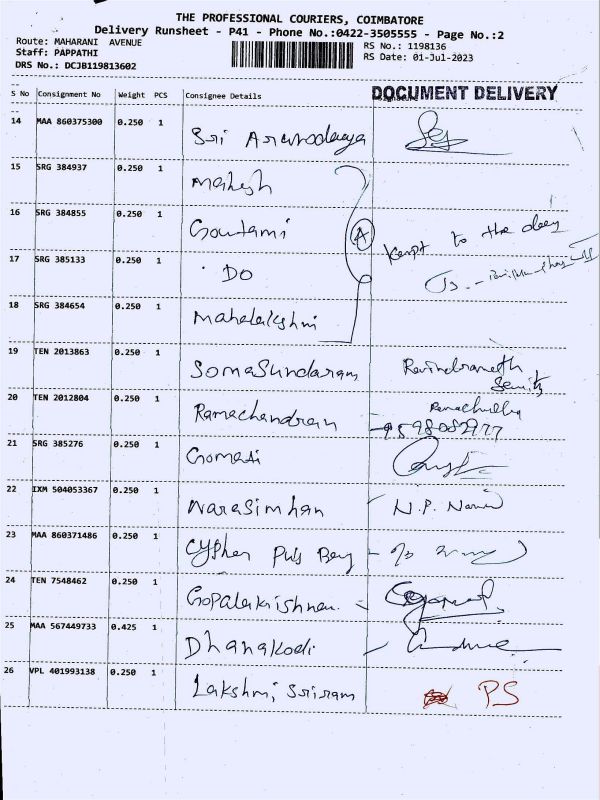 THE PROFESSIONAL COURIERS, COIMBATORE
Delivery Runsheet - P41 - Phone No.:0422-3505555 - Page No.:2
Route: MAHARANI AVENUE
RS No.: 1198136
Staff: PAPPATHI
RS Date: 01-Jul-2023
DRS No.: DCJB119813602
DOCUMENT DELIVERY
S No Consignment No Weight PCS Consignee Details
14 MAA 860375300 0.250 1 Sri Arunodaya
15 SRG 384937 0.250 1 Mahesh
16 SRG 384855 0.250 1 Goutami
A Kept to the
17 SRG 385133 0.250 1 DO
18 SRG 384654 0.250 1 Mahalakshmi
19 TEN 2013863 0.250 1 SomaSundaram
20 TEN 2012804 0.250 1 Ramachandran
21 SRG 385276 0.250 1 Gomati
22 IXM 504053367 0.250 1 Narasimhan N.P.
23 MAA 860371486 0.250 1 Cypher
24 TEN 7548462 0.250 1 Gopalakrishnan
25 MAA 567449733 0.425 1 Dhanakodi
26 VPL 401993138 0.250 1 Lakshmi Sriram PS